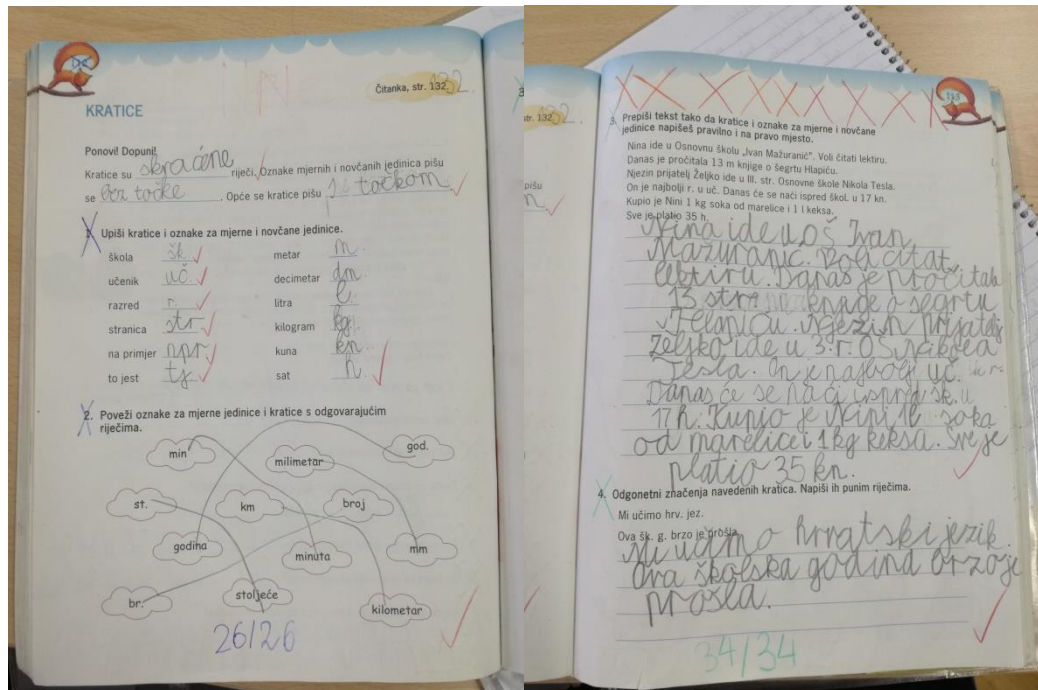 Čitanka, str. 132.
132
KRATICE
Ponovi! Dopuni!
Kratice su skraćene riječi. Oznake mjernih i novčanih jedinica pišu
se bez točke. Opće se kratice pišu s točkom
1. Upiši kratice i oznake za mjerne i novčane jedinice.
škola šk metar m.
učenik uč. decimetar dm
razred r. litra l
stranica str kilogram kg
na primjer npr. kuna kn.
to jest tj. sat h
2. Poveži oznake za mjerne jedinice i kratice s odgovarajućim
riječima.
min milimetar god.
st. km broj
godina minuta mm
br. stoljeće kilometar
26/26
str. 132.
pišu
3. Prepiši tekst tako da kratice i oznake za mjerne i novčane
jedinice napišeš pravilno i na pravo mjesto.
Nina ide u Osnovnu školu „Ivan Mažuranić". Voli čitati lektiru.
Danas je pročitala 13 m knjige o šegrtu Hlapiću.
Njezin prijatelj Željko ide u III. str. Osnovne škole Nikola Tesla.
On je najbolji r. u uč. Danas će se naći ispred škol. u 17 kn.
Kupio je Nini 1 kg soka od marelice i 1 l keksa.
Sve je platio 35 h.
Nina ide u oš Ivan
Mažuranić. Voli čitat
lektiru. Danas je pročitala
13 str. o šegrtu
Njezin prijatelj
Željko ide u 3. r. OŠ. Nikola
Tesla. On je najbolji uč. u r.
Danas će se naći ispred šk. u
17 h. Kupio je Nini 1l soka
od marelice i 1 kg keksa. Sve je
platio 35 kn.
4. Odgonetni značenja navedenih kratica. Napiši ih punim riječima.
Mi učimo hrv. jez.
Ova šk. g. brzo je prošla.
Mi učimo hrvatski jezik.
Ova školska godina brzo je
prošla.
34/34